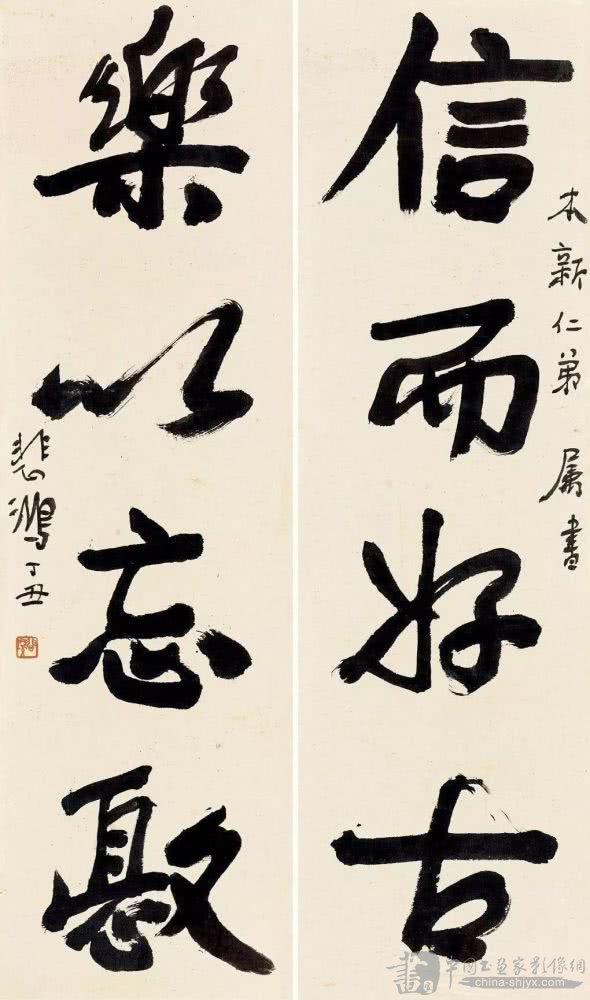 信而好古
本新仁弟 属書
樂以忘憂
悲鴻 丁丑
書
中國书画家影像網
china-shjyx.com